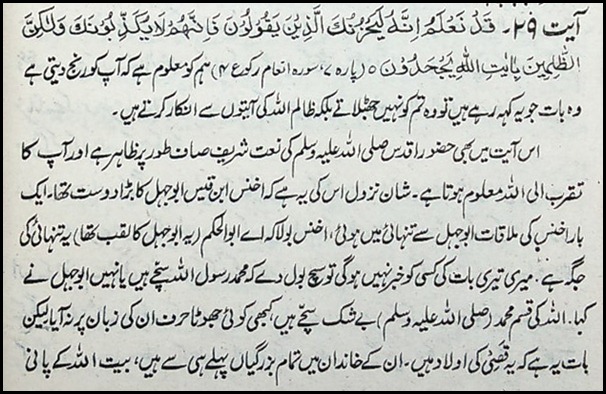 آیت ۲۹۔ قَدْ نَعْلَمُ اِنَّهٗ لَیَحْزُنُكَ الَّذِیْنَ یَقُوْلُوْنَ فَاِنَّهُمْ لَا یُكَذِّبُوْنَكَ وَلٰكِنَّ
الظّٰلِمِیْنَ بِاٰیٰتِ اللّٰهِ یَجْحَدُوْنَ ۝ (پارہ ۷، سورہ انعام رکوع ۴) ہم کو معلوم ہے کہ آپ کو رنج دیتی ہے
وہ بات جو یہ کہہ رہے ہیں تو وہ تم کو نہیں جھٹلاتے بلکہ ظالم اللہ کی آیتوں سے انکار کرتے ہیں۔
اس آیت میں بھی حضور اقدس صلی اللہ علیہ وسلم کی نعت شریف صاف طور پر ظاہر ہے اور آپ کا
تقرب الی اللہ معلوم ہوتا ہے۔ شان نزول اس کی یہ ہے کہ اخنس ابن قیس ابوجہل کا بڑا دوست تھا۔ ایک
بار اخنس کی ملاقات ابوجہل سے تنہائی میں ہوئی، اخنس بولا کہ اے ابوالحکم (یہ ابوجہل کا لقب تھا) یہ تنہائی کی
جگہ ہے۔ میری تیری بات کی کسی کو خبر نہیں ہوگی تو سچ بول دے کہ محمد رسول اللہ سچے ہیں یا نہیں ابوجہل نے
کہا۔ اللہ کی قسم محمد (صلی اللہ علیہ وسلم) بے شک سچے ہیں، کبھی کوئی جھوٹا حرف ان کی زبان پر نہ آیا لیکن
بات یہ ہے کہ یہ قُصَیّ کی اولاد میں۔ ان کے خاندان میں تمام بزرگیاں پہلے ہی سے ہیں، بیت اللہ کے پانی